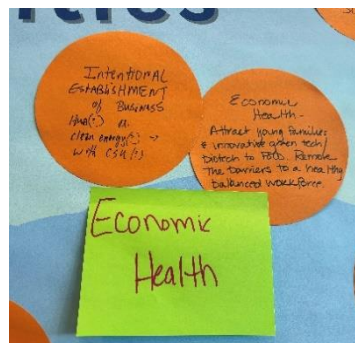 INTENTIONAL
ESTABLISHMENT
of BUSINESS
HUB(?) in
clean energy(?) →
with CSU(?)
Economic
Health -
Attract young families
& innovative green tech/
biotech to FoCo. Remove
The barriers to a healthy
balanced workforce.
Economic
Health